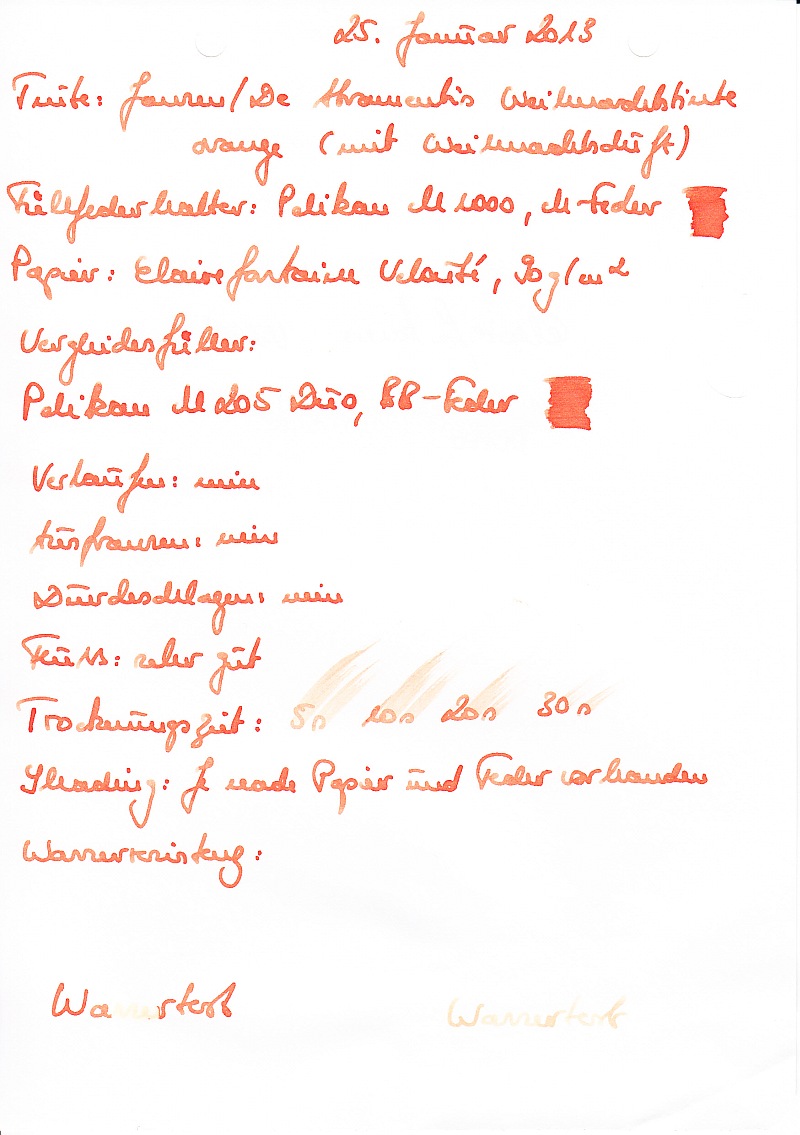 25. Januar 2013
Tinte: Jansen/De Atramentis Weihnachtstinte
orange (mit Weihnachtsduft)
Füllfederhalter: Pelikan M 1000, M-Feder
Papier: Clairefontaine Velouté, 90g/m²
Vergleichsfüller:
Pelikan M 205 Duo, BB-Feder
Verlaufen: nein
Ausfransen: nein
Durchschlagen: nein
Fluss: sehr gut
Trocknungszeit: 5s 10s 20s 30s
Shading: Je nach Papier und Feder vorhanden
Wasserresistenz:
Wassertest Wassertest